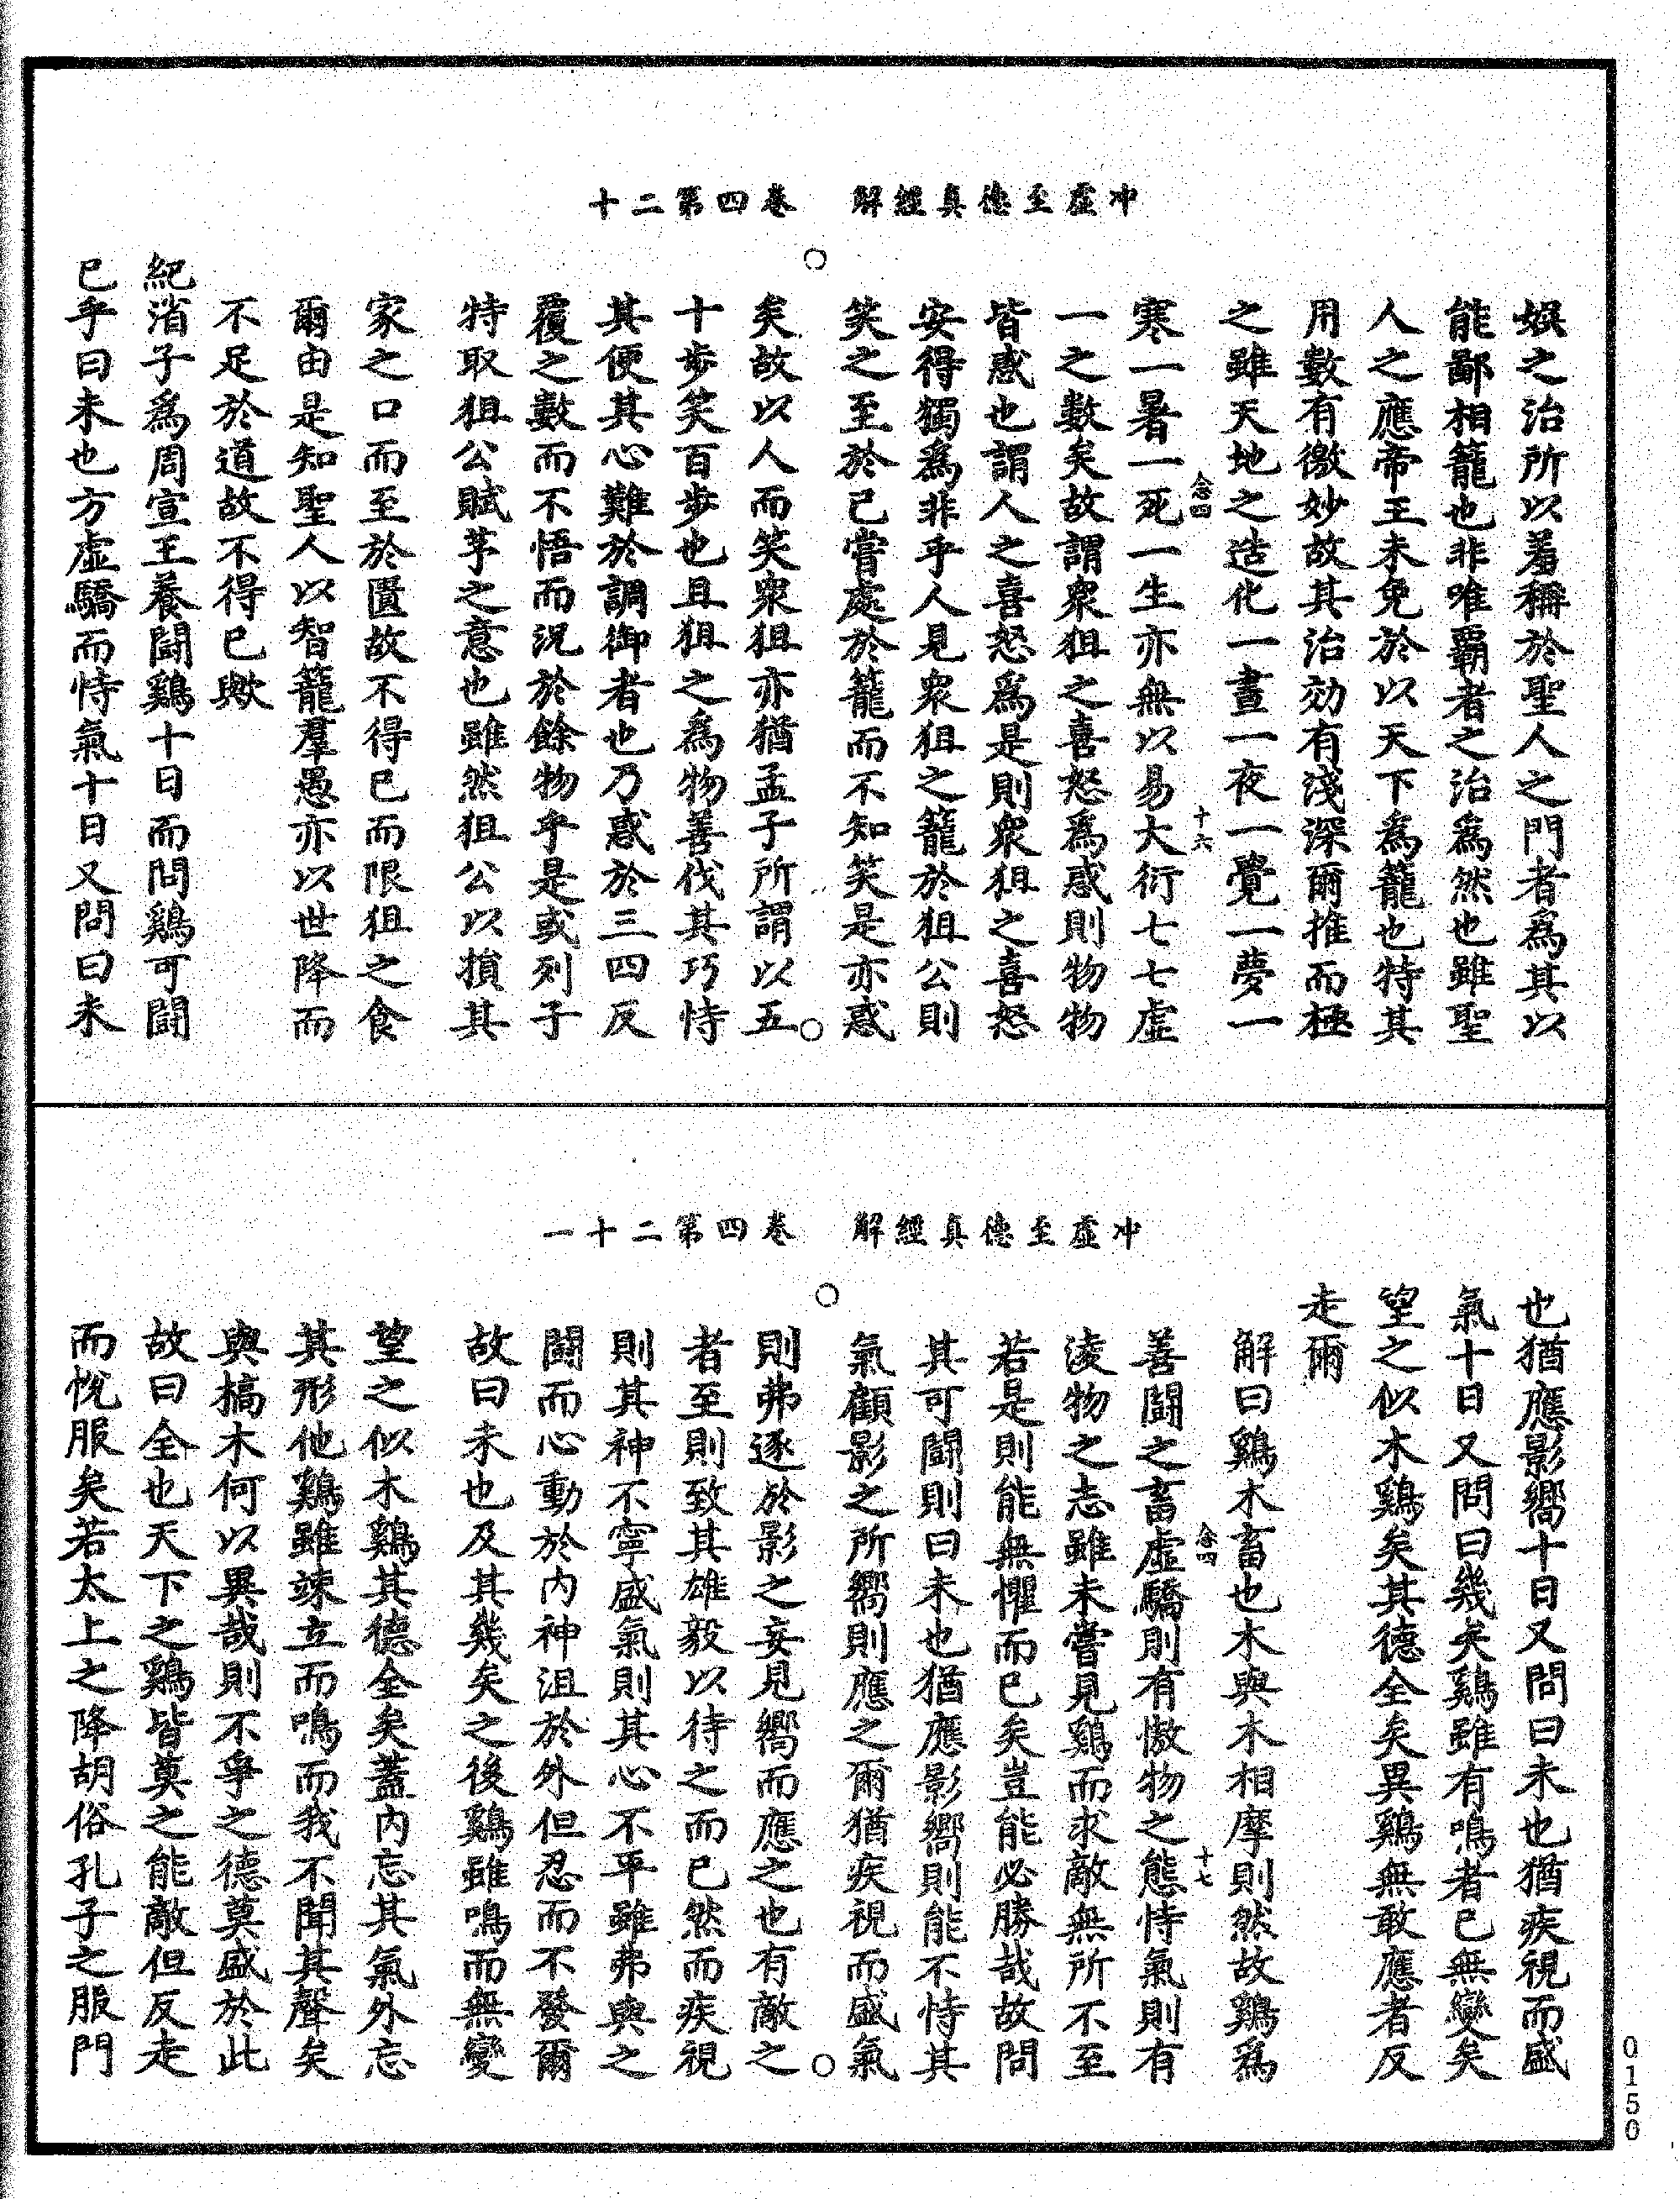 冲虚至德真經解　卷四第二十
娛之治所以羞稱於聖人之門者爲其以
能鄙相籠也非唯覇者之治爲然也雖聖
人之應帝王未免於以天下爲籠也特其
用數有徼妙故其治効有淺深爾推而極
之雖天地之造化一晝一夜一覺一夢一
念四　十六
寒一暑一死一生亦無以易大衍七七虛
一之數矣故謂衆狙之喜怒爲惑則物物
皆惑也謂人之喜怒爲是則衆狙之喜怒
安得獨爲非乎人見衆狙之籠於狙公則
笑之至於己嘗處於籠而不知笑是亦惑
矣故以人而笑衆狙亦猶孟子所謂以五
十步笑百步也且狙之爲物善伐其巧恃
其便其心難於調御者也乃惑於三四反
覆之數而不悟而況於餘物乎是或列子
特取狙公賦芧之意也雖然狙公以損其
家之口而至於匱故不得已而限狙之食
爾由是知聖人以智籠羣愚亦以世降而
不足於道故不得已歟
紀渻子爲周宣王養鬪鷄十日而問鷄可鬪
已乎曰未也方虛驕而恃氣十日又問曰未
冲虚至德真經解　卷四第二十一
也猶應影嚮十日又問曰未也猶疾視而盛
氣十日又問曰幾矣鷄雖有鳴者已無變矣
望之似木鷄矣其德全矣異鷄無敢應者反
走爾
解曰鷄木畜也木與木相摩則然故鷄爲
念四　十七
善鬪之畜虛驕則有慠物之態恃氣則有
淩物之志雖未嘗見鷄而求敵無所不至
若是則能無懼而已矣豈能必勝哉故問
其可鬪則曰未也猶應影嚮則能不恃其
氣顧影之所嚮則應之爾猶疾視而盛氣
則弗逐於影之妄見嚮而應之也有敵之
者至則致其雄毅以待之而已然而疾視
則其神不寧盛氣則其心不平雖弗與之
鬪而心動於內神沮於外但忍而不發爾
故曰未也及其幾矣之後鷄雖鳴而無變
望之似木鷄其德全矣蓋內忘其氣外忘
其形他鷄雖竦立而鳴而我不聞其聲矣
與槁木何以異哉則不爭之德莫盛於此
故曰全也天下之鷄皆莫之能敵但反走
而悅服矣若太上之降胡俗孔子之服門
0150